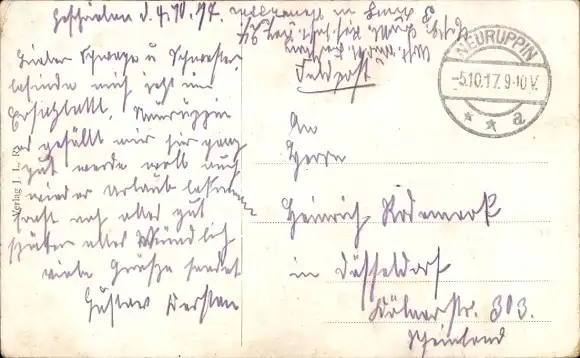 Geschrieben d. 4.10.17.
Lieber Schwager u Schwester,
befinde mich jetzt im
Ersatzbatl. Neuruppin
es gefällt mir hier ganz
gut werde wohl auch
wieder Urlaub bekommen
sonst noch alles gut
später alles Mündlich
viele Grüße sendet
Gustav Kersten
Feldpost
NEURUPPIN
-5.10.17. 9-10 V.
* * a
An
Herrn
Heinrich Rodemerk
in Düsseldorf
Kölnerstr. 303.
Rheinland
Verlag J. L. R.